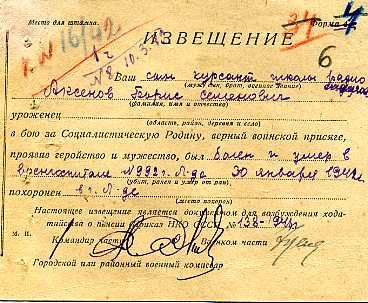 Место для штампа. Форма 4
К. № 16/92 34 4
1 г
№ 8 10.3.42
ИЗВЕЩЕНИЕ
6
Ваш сын курсант школы радио
(муж, сын, брат, военное звание)
Аксенов Борис Семенович
(фамилия, имя и отчество)
уроженец
(область, район, деревня и село)
в бою за Социалистическую Родину, верный воинской присяге,
проявив геройство и мужество, был болен и умер в
военгоспитале №992 г. Л-да 30 января 1942 г.
(убит, ранен и умер от ран)
похоронен в г. Л-де
(место похорон)
Настоящее извещение является документом для возбуждения хода-
тайства о пенсии (приказ НКО СССР № 138-941 г.
м. п.
Командир части Военком части
Городской или районный военный комиссар